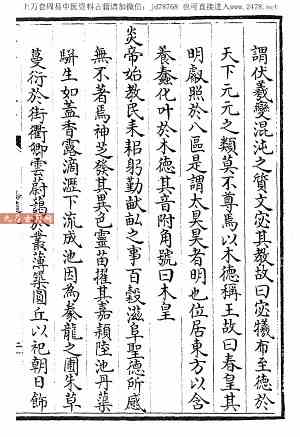 上万套周易中医资料古籍请加微信：jd78768 也可直接进入www.2478.net
謂伏羲變混沌之質文宓其教故曰宓犧布至德於
天下元元之類莫不尊焉以木德稱王故曰春皇其
明叡照於八區是謂太昊昊者明也位居東方以含
養蠢化叶於木德其音附角號曰木皇
炎帝始教民耒耜躬勤畎畝之事百穀滋阜聖德所感
無不著焉神芝發其異色靈苗擢其嘉穎陸池丹蕖
駢生如蓋香露滴瀝下流成池因為豢龍之圃朱草
蔓衍於街衢卿雲蔚藹於叢薄築圓丘以祀朝日飾
二